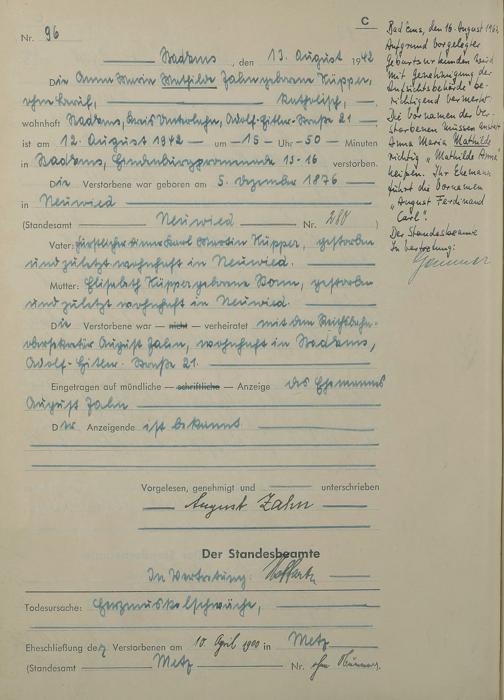 C
Nr. 96
Bad Ems, den 13. August 1942
Die Anna Maria Mathilde Zahn geborene Küpper,
ohne Beruf, katholisch,
wohnhaft Bad Ems, Kreis Unterlahn, Adolf-Hitler-Straße 21
ist am 12. August 1942 um 15 Uhr 50 Minuten
in Bad Ems, Hindenburgpromenade 15-16 verstorben.
Die Verstorbene war geboren am 5. Dezember 1876
in Neuwied
(Standesamt Neuwied Nr. 280 )
Vater: fürstlicher Karl Martin Küpper, gestorben
und zuletzt wohnhaft in Neuwied.
Mutter: Elisabeth Küpper geborene Bonn, gestorben
und zuletzt wohnhaft in Neuwied.
Die Verstorbene war — nicht — verheiratet mit dem Reichsbahn-
obersekretär August Zahn, wohnhaft in Bad Ems,
Adolf-Hitler-Straße 21.
Eingetragen auf mündliche — schriftliche — Anzeige des Ehemannes
August Zahn
Der Anzeigende ist bekannt
Vorgelesen, genehmigt und unterschrieben
August Zahn
Der Standesbeamte
In Vertretung:
Todesursache: Herzmuskelschwäche,
Eheschließung der Verstorbenen am 10. April 1900 in Metz
(Standesamt Metz Nr. ohne Nummer).
Bad Ems, den 16. August 1942
Aufgrund vorgelegter
Geburtsurkunden wird
mit Genehmigung der
Aufsichtsbehörde be-
richtigend vermerkt:
Die Vornamen der Ver-
storbenen müssen anstatt
Anna Maria Mathilde
richtig "Mathilde Anna"
heißen. Ihr Ehemann
führt die Vornamen
"August Ferdinand
Carl".
Der Standesbeamte
In Vertretung: